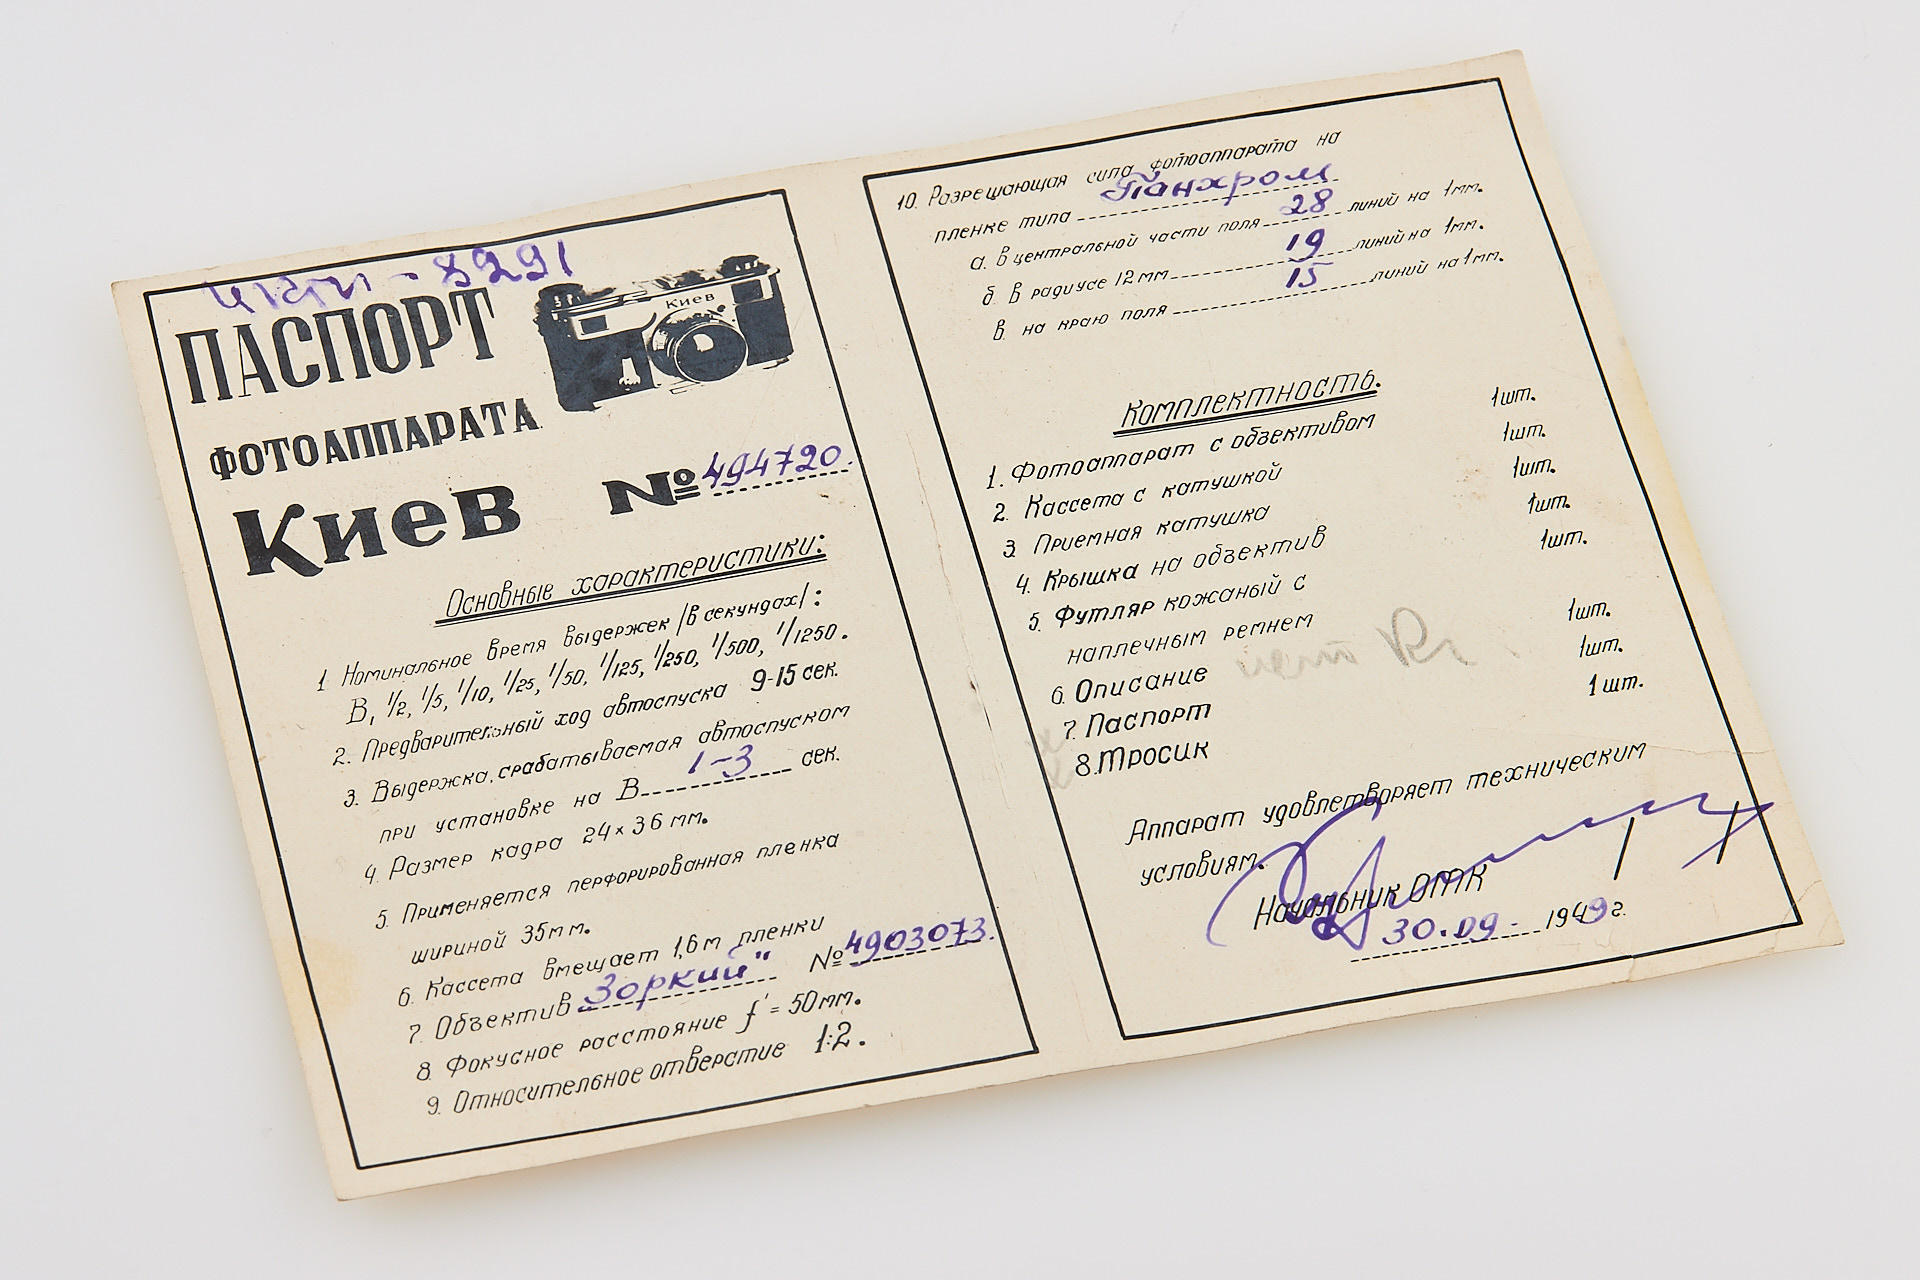 8291
ПАСПОРТ
Киев
ФОТОАППАРАТА
Киев № 494720
Основные характеристики:
1. Номинальное время выдержек /в секундах/:
В, 1/2, 1/5, 1/10, 1/25, 1/50, 1/125, 1/250, 1/500, 1/1250.
2. Предварительный ход автоспуска 9-15 сек.
3. Выдержка, срабатываемая автоспуском
при установке на В 1-3 сек.
4. Размер кадра 24×36 мм.
5. Применяется перфорированная пленка
шириной 35мм.
6. Кассета вмещает 1,6м пленки
7. Объектив „Зоркий" № 4903073.
8. Фокусное расстояние f' = 50мм.
9. Относительное отверстие 1:2.
10. Разрешающая сила фотоаппарата на
пленке типа Панхром
а. в центральной части поля 28 линий на 1мм.
б. в радиусе 12мм 19 линий на 1мм.
в. на краю поля 15 линий на 1мм.
Комплектность.
1. Фотоаппарат с объективом 1шт.
2. Кассета с катушкой 1шт.
3. Приемная катушка 1шт.
4. Крышка на объектив 1шт.
5. Футляр кожаный с 1шт.
наплечным ремнем
6. Описание 1шт.
7. Паспорт 1шт.
8. Тросик 1шт.
Аппарат удовлетворяет техническим
условиям.
Начальник ОТК
30.09. 1949г.